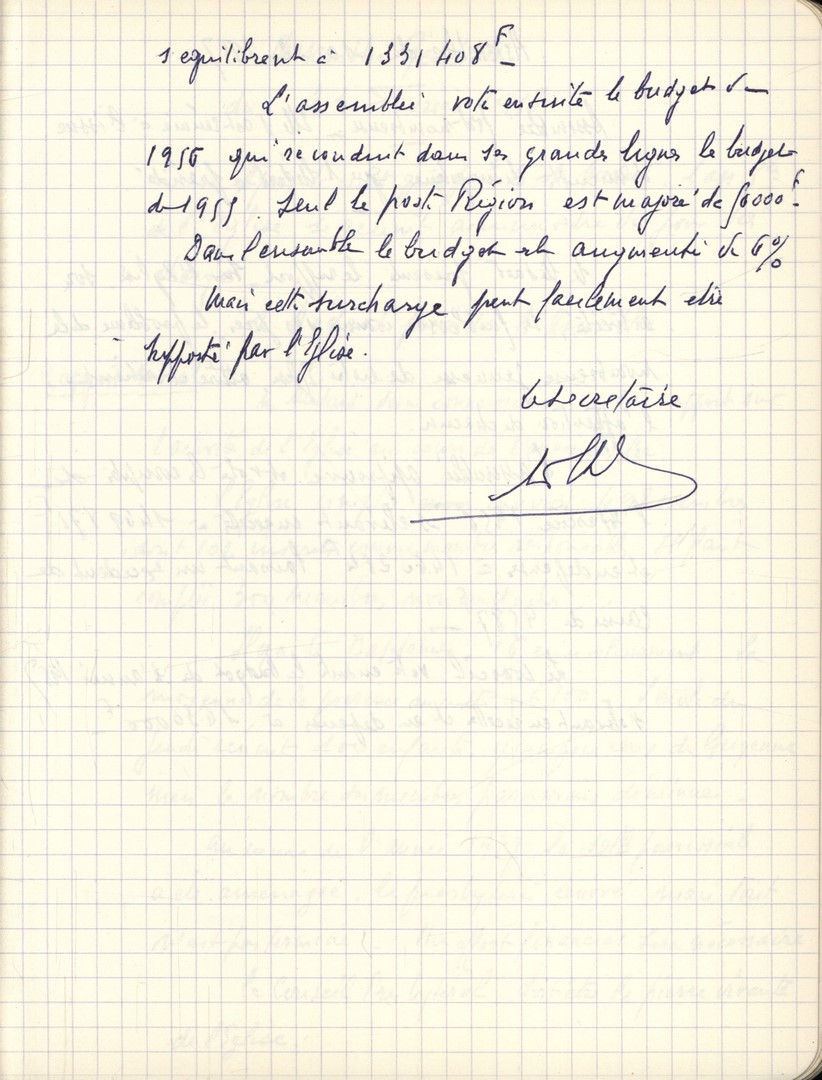 s'equilibrent à 1331 408 F
L'assemblée vote ensuite le budget du
1956 qui reconduit dans ses grandes lignes le budget
de 1955. Seul le poste Région est majoré de 50000 F.
Dans l'ensemble le budget est augmenté de 6%
Mais cette surcharge peut facilement etre
supporté par l'Eglise.
Le secretaire